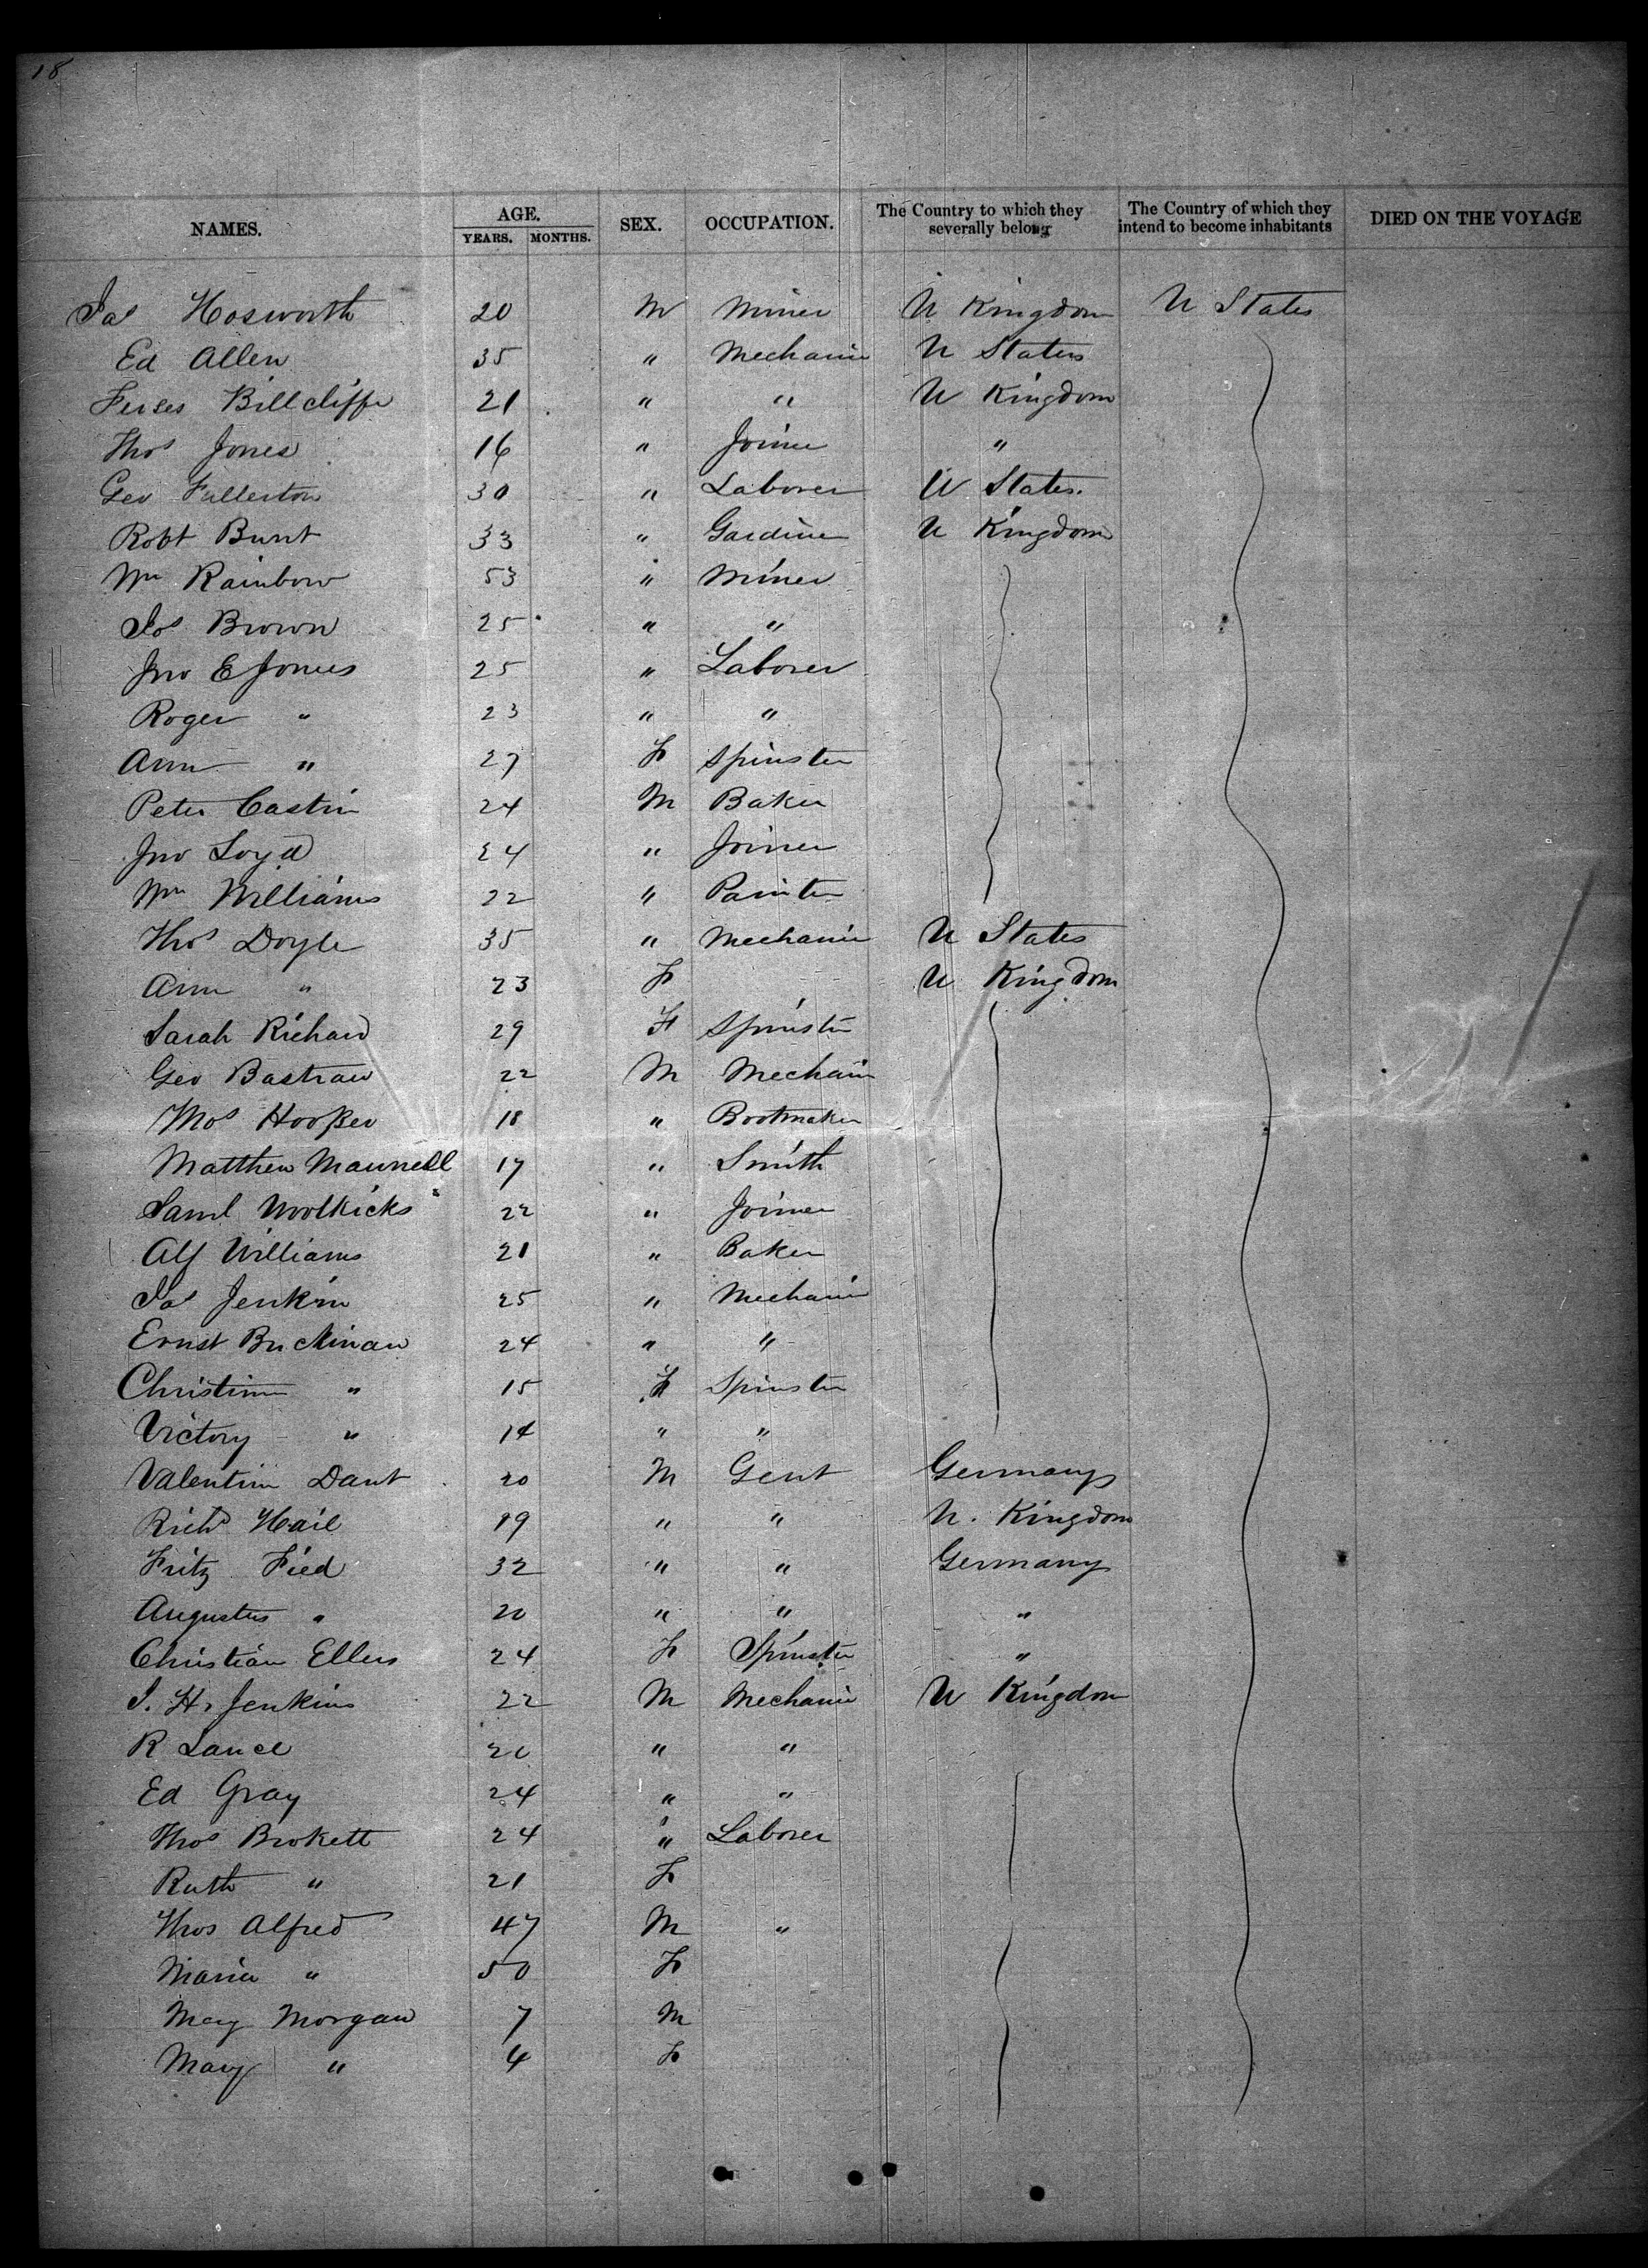 18
NAMES. AGE. SEX. OCCUPATION. The Country to which they severally belong The Country of which they intend to become inhabitants DIED ON THE VOYAGE
YEARS. MONTHS.
Jas Hosworth 20 M Miner U Kingdom U States
Ed Allen 35 " Mechanic U States
Billcliffe 21 " " U Kingdom
Thos Jones 16 " Joiner "
Geo Fullerton 30 " Laborer U States.
Robt Bunt 33 " Gardiner U Kingdom
Wm Rainbow 53 " Miner
Jos Brown 25 " "
Jno E Jones 25 " Laborer
Roger " 23 " "
Ann " 27 F Spinster
Peter Castin 24 M Baker
Jno Loyd 24 " Joiner
Wm Williams 22 " Painter
Thos Doyle 35 " Mechanic U States
Ann " 23 F U Kingdom
Sarah Richard 29 F Spinster
Geo Bastraw 22 M Mechanic
Thos Hooper 18 " Bootmaker
Matthew Maunell 17 " Smith
Saml Woolkicks 22 " Joiner
Alf Williams 21 " Baker
Jas Jenkin 25 " Mechanic
Ernst 24 " "
Christine " 15 F Spinster
Victory " 14 " "
Valentine Dant 20 M Gent Germany
Richd Hail 19 " " U. Kingdom
Fritz Fied 32 " " Germany
Augustus " 20 " " "
Christian Ellers 24 F Spinster "
J. H. Jenkins 22 M Mechanic U Kingdom
R Lance 20 " "
Ed Gray 24 " "
Thos Brokett 24 " Laborer
Ruth " 21 F
Thos Alfred 47 M "
Maria " 50 F
Morgan 7 M
Mary " 4 F